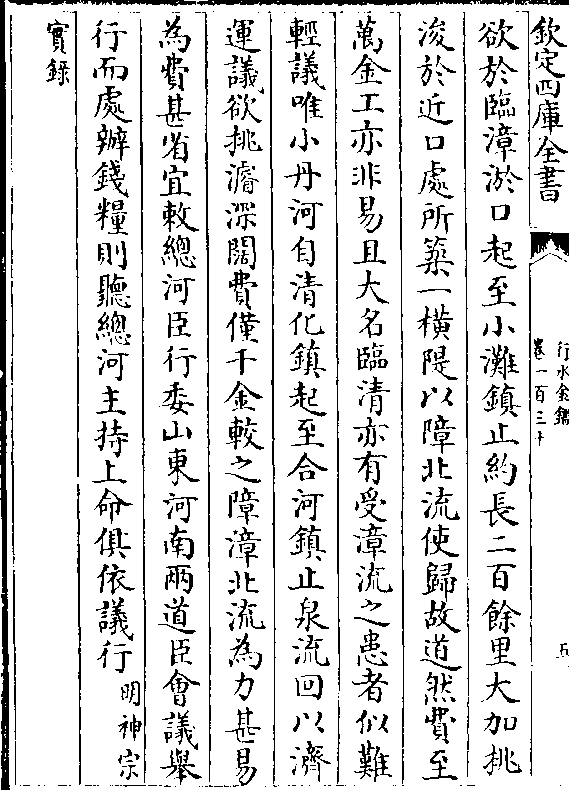 欽定四庫全書
行水金鑑
卷一百三十
五
欲於臨漳淤口起至小灘鎮止約長二百餘里大加挑
浚於近口處所築一橫隄以障北流使歸故道然費至
萬金工亦非易且大名臨清亦有受漳流之患者似難
輕議唯小丹河自清化鎮起至合河鎮止泉流回以濟
運議欲挑濬深闊費僅千金較之障漳北流為力甚易
為費甚省宜敕總河臣行委山東河南兩道臣會議舉
行而處辦錢糧則聽總河主持上命俱依議行明神宗
實錄